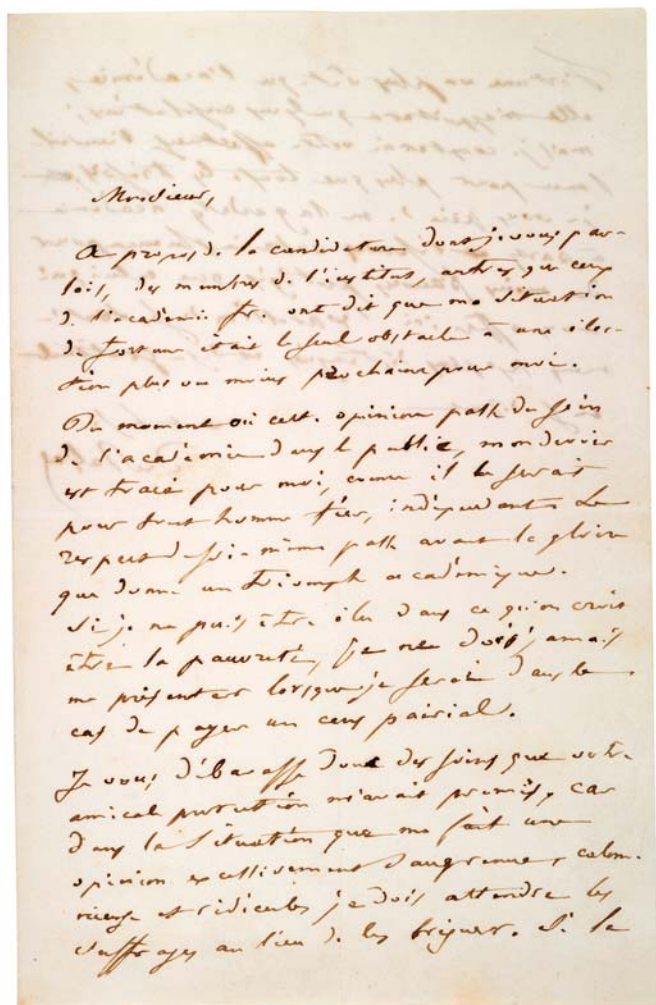 Monsieur,
A propos de la candidature dont je vous par-
lais, des membres de l'institut, autres que ceux
de l'académie fr. ont dit que ma situation
de fortune était le seul obstacle à une élec-
tion plus ou moins prochaine pour moi.
Du moment où cette opinion passe du sein
de l'académie dans le public, mon devoir
est tracé pour moi, comme il le serait
pour tout homme fier, indépendant. Le
respect de soi-même passe avant la gloire
que donne un triomphe académique.
Si je ne puis être élu dans ce qu'on croit
être la pauvreté, je ne dois jamais
me présenter lorsque je serai dans le
cas de payer un cens pairial.
Je vous débarasse donc des soins que votre
amicale protection m'avait promis, car
dans la situation que me fait une
opinion excessivement saugrenue, calom-
nieuse et ridicule, je dois attendre les
suffrages au lieu de les briguer. Si la